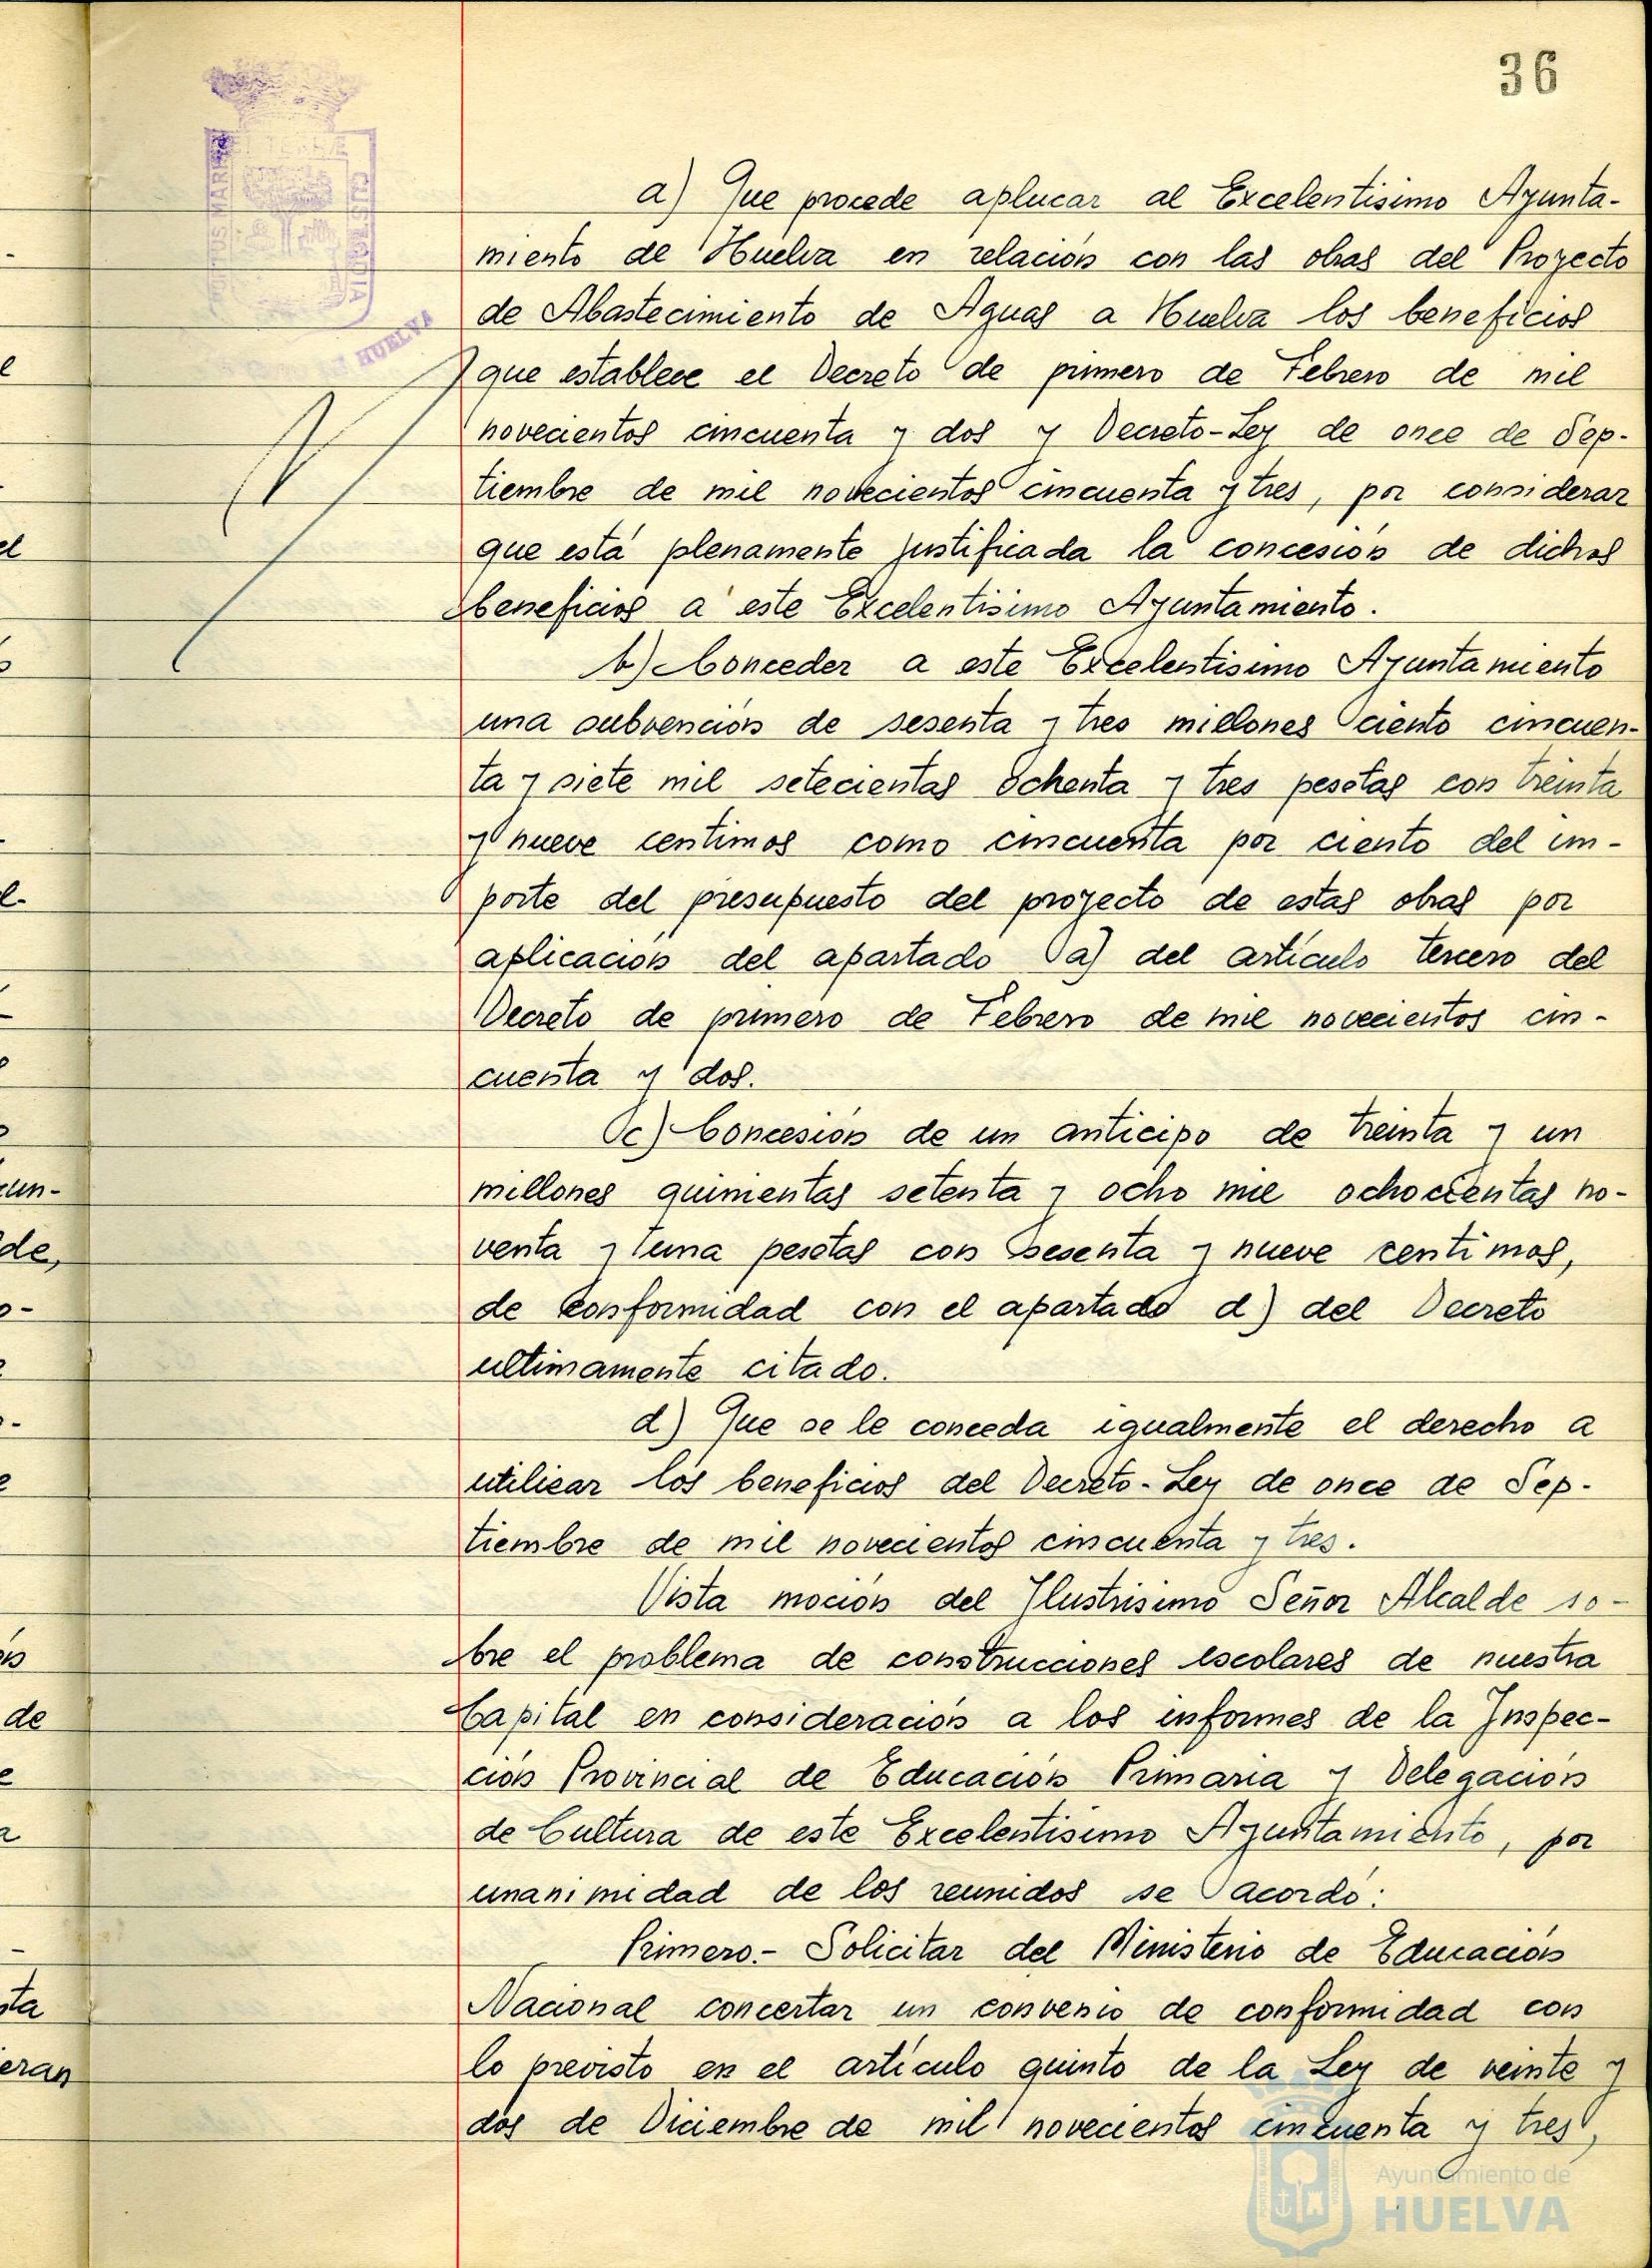 36
PORTUS MARIS ET TERRÆ CUSTODIA
HUELVA
a) Que procede aplucar al Excelentisimo Ayunta-
miento de Huelva en relación con las obras del Proyecto
de Abastecimiento de Aguas a Huelva los beneficios
que establece el Decreto de primero de Febrero de mil
novecientos cincuenta y dos y Decreto-Ley de once de Sep-
tiembre de mil novecientos cincuenta y tres, por considerar
que está plenamente justificada la concesión de dichos
beneficios a este Excelentisimo Ayuntamiento.
b) Conceder a este Excelentisimo Ayuntamiento
una subvención de sesenta y tres millones ciento cincuen-
ta y siete mil setecientas ochenta y tres pesetas con treinta
y nueve centimos como cincuenta por ciento del im-
porte del presupuesto del proyecto de estas obras por
aplicación del apartado a) del artículo tercero del
Decreto de primero de Febrero de mil novecientos cin-
cuenta y dos.
c) Concesión de un anticipo de treinta y un
millones quinientas setenta y ocho mil ochocientas no-
venta y una pesetas con sesenta y nueve centimos,
de conformidad con el apartado d) del Decreto
ultimamente citado.
d) Que se le conceda igualmente el derecho a
utilizar los beneficios del Decreto-Ley de once de Sep-
tiembre de mil novecientos cincuenta y tres.
Vista moción del Ilustrisimo Señor Alcalde so-
bre el problema de construcciones escolares de nuestra
Capital en consideración a los informes de la Inspec-
ción Provincial de Educación Primaria y Delegación
de Cultura de este Excelentisimo Ayuntamiento, por
unanimidad de los reunidos se acordó:
Primero.- Solicitar del Ministerio de Educación
Nacional concertar un convenio de conformidad con
lo previsto en el artículo quinto de la Ley de veinte y
dos de Diciembre de mil novecientos cincuenta y tres,
Ayuntamiento de
HUELVA